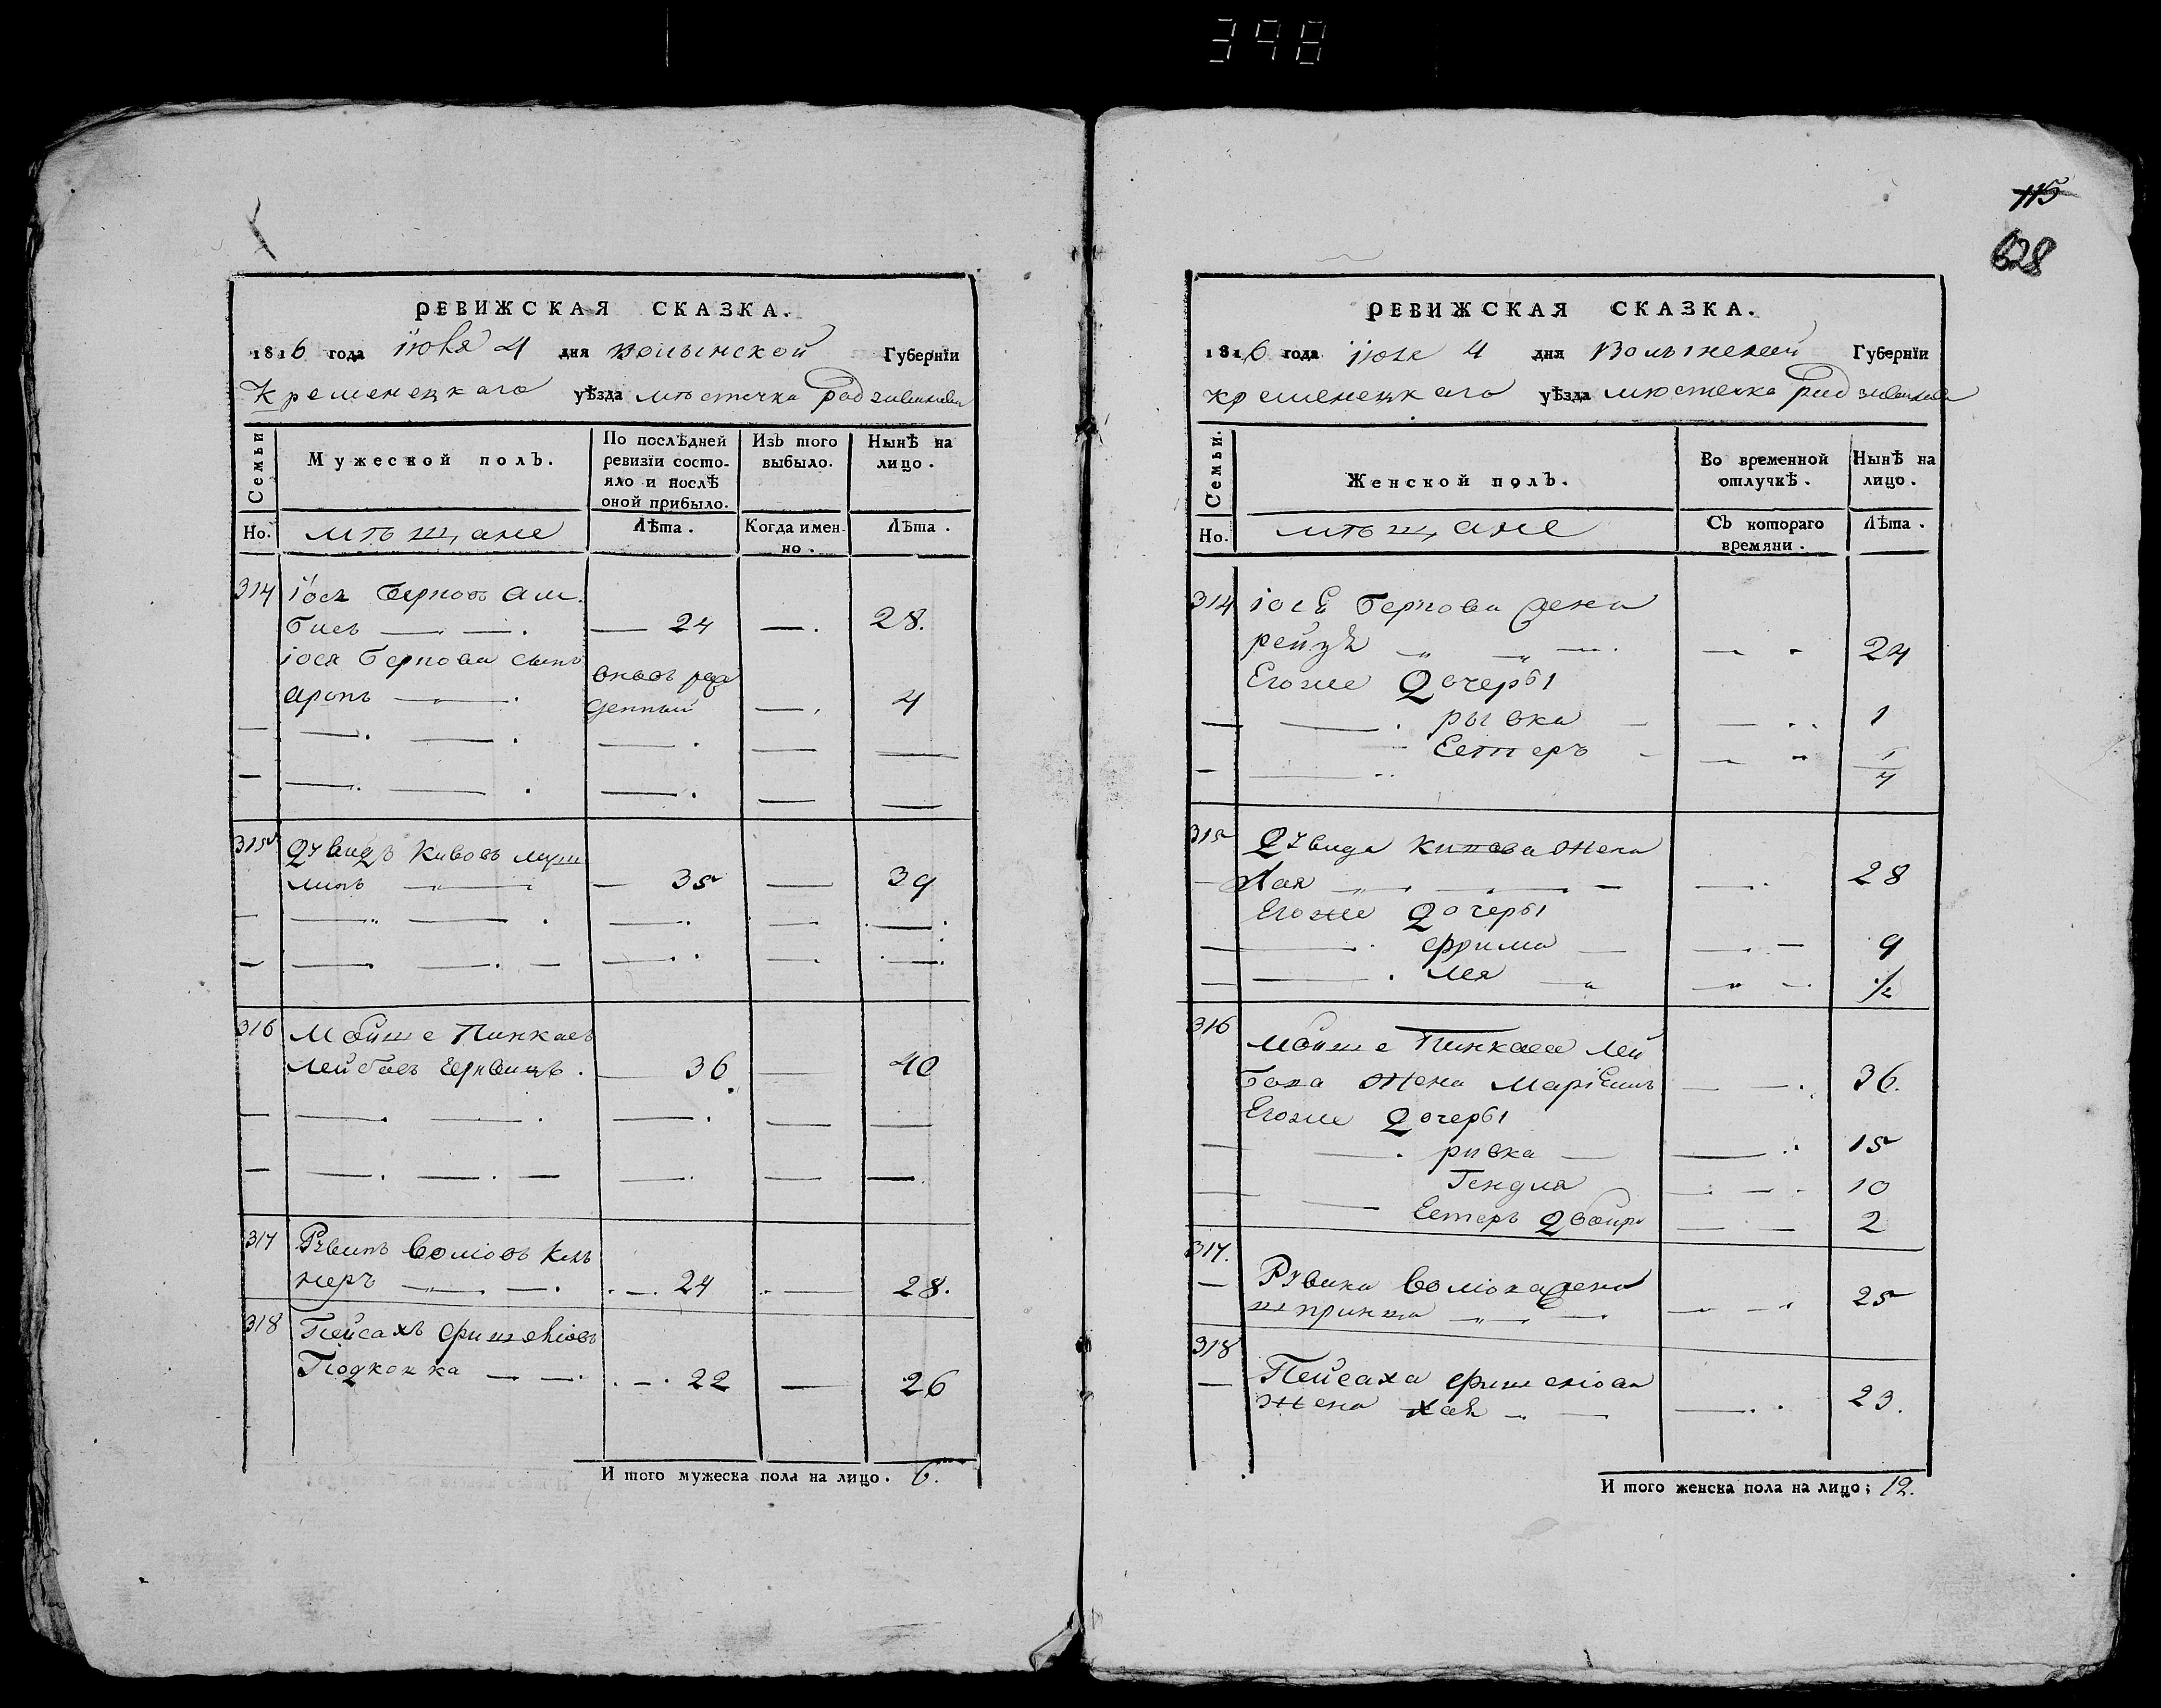 398
115
628
РЕВИЖСКАЯ СКАЗКА.
1816 года іюля 4 дня волынской Губернїи
Кременецкаго уѣзда мѣстечка Радзивилова
Семьи
Мужеской полъ.
По послѣдней ревизїи состояло и послѣ оной прибыло.
Изъ того выбыло.
Нынѣ на лицо.
Но.
мѣщане
Лѣта.
Когда именно.
Лѣта.
314 іося Берковъ
— 24 — 28.
іося Беркова сынъ
вновь рож
аронъ — денный — 4
315 Дувидъ Кивовъ
— 35 — 39
316 Мойше Пинкасъ
Лейбовъ — 36 — 40
317 Рувинъ Волiовъ
неръ — 24 — 28.
318 Пейсахъ Фишелiовъ
Подконка — 22 — 26
И того мужеска пола на лицо. 6.
РЕВИЖСКАЯ СКАЗКА.
1816 года іюля 4 дня Волынской Губернїи
кременецкаго уѣзда мюстечка Радзивилова
Семьи.
Женской полъ.
Во временной отлучкѣ.
Нынѣ на лицо.
Но.
мѣщане
Съ котораго времяни.
Лѣта.
314 іосѣ Беркова жена
рейзѣ — 24
Егоже Дочеры
рывка — 1
Естеръ — 1/4
315 Дувида Кивова жена
Хая — 28
Егоже Дочеры
Фрима — 9
Лея — 1/2
316 Мойше Пинкаса Лей
бова жена — 36.
Егоже Дочеры
ривка — 15
Гендля — 10
Естеръ Двойра — 2
317. Рувина Волiова жена
шпринца — 25
318 Пейсаха Фишелiова
жена хаѣ — 23.
И того женска пола на лицо; 12.